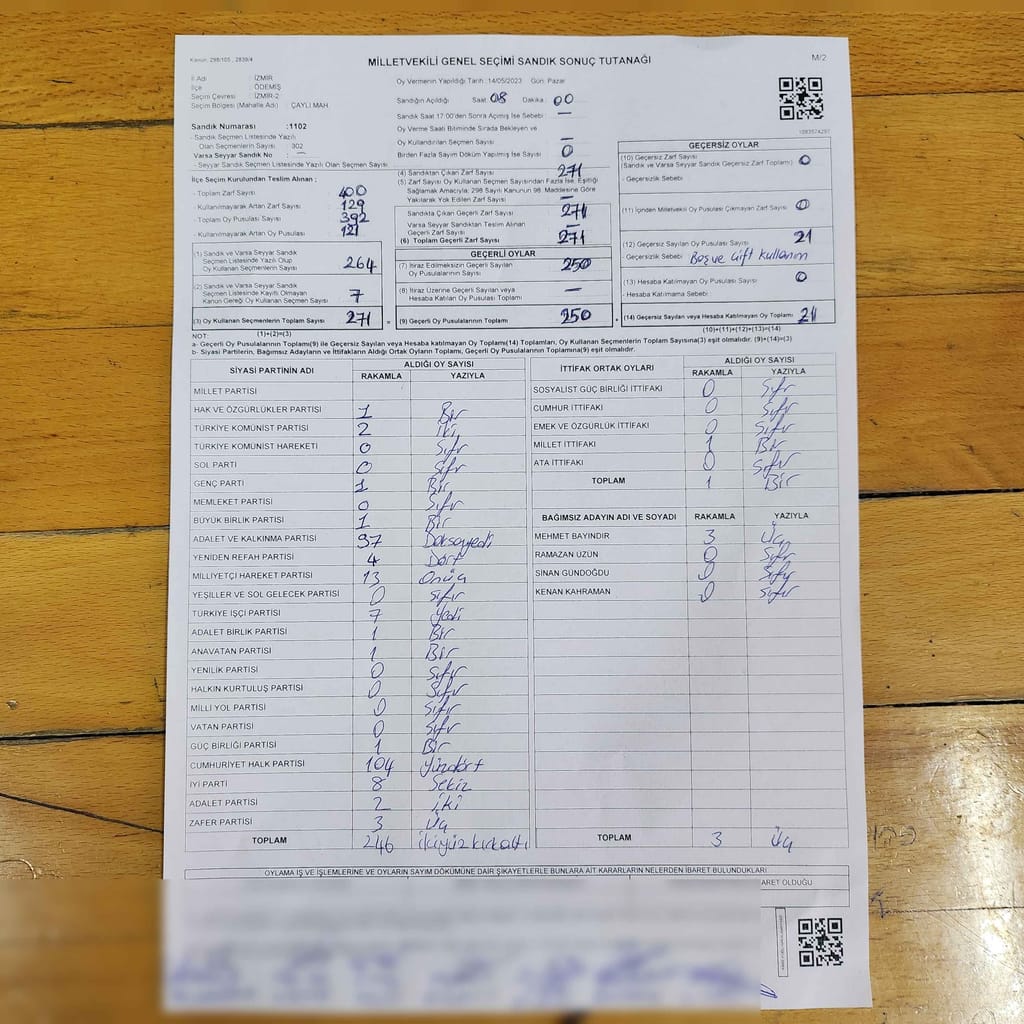 Kanun: 298/105 , 2839/4
MİLLETVEKİLİ GENEL SEÇİMİ SANDIK SONUÇ TUTANAĞI
M/2
İl Adı : İZMİR
İlçe : ÖDEMİŞ
Seçim Çevresi : İZMİR-2
Seçim Bölgesi (Mahalle Adı) : ÇAYLI MAH.
Oy Vermenin Yapıldığı Tarih :14/05/2023 Gün: Pazar
Sandığın Açıldığı Saat: 08 Dakika : 00
Sandık Saat 17:00'den Sonra Açılmış İse Sebebi : —
Oy Verme Saati Bitiminde Sırada Bekleyen ve
Oy Kullandırılan Seçmen Sayısı : —
Birden Fazla Sayım Döküm Yapılmış İse Sayısı : 0
1083574297
Sandık Numarası :1102
- Sandık Seçmen Listesinde Yazılı
Olan Seçmenlerin Sayısı : 302
Varsa Seyyar Sandık No : —
- Seyyar Sandık Seçmen Listesinde Yazılı Olan Seçmen Sayısı:
İlçe Seçim Kurulundan Teslim Alınan ;
- Toplam Zarf Sayısı : 400
- Kullanılmayarak Artan Zarf Sayısı : 129
- Toplam Oy Pusulası Sayısı : 392
- Kullanılmayarak Artan Oy Pusulası : 121
(1) Sandık ve Varsa Seyyar Sandık
Seçmen Listesinde Yazılı Olup
Oy Kullanan Seçmenlerin Sayısı : 264
(2) Sandık ve Varsa Seyyar Sandık
Seçmen Listesinde Kayıtlı Olmayan
Kanun Gereği Oy Kullanan Seçmen Sayısı : 7
(3) Oy Kullanan Seçmenlerin Toplam Sayısı : 271
(1)+(2)=(3)
(4) Sandıktan Çıkan Zarf Sayısı : 271
(5) Zarf Sayısı Oy Kullanan Seçmen Sayısından Fazla İse, Eşitliği
Sağlamak Amacıyla; 298 Sayılı Kanunun 98. Maddesine Göre
Yakılarak Yok Edilen Zarf Sayısı : —
Sandıkta Çıkan Geçerli Zarf Sayısı : 271
Varsa Seyyar Sandıktan Teslim Alınan
Geçerli Zarf Sayısı : —
(6) Toplam Geçerli Zarf Sayısı : 271
GEÇERLİ OYLAR
(7) İtiraz Edilmeksizin Geçerli Sayılan
Oy Pusulalarının Sayısı : 250
(8) İtiraz Üzerine Geçerli Sayılan veya
Hesaba Katılan Oy Pusulası Toplamı : —
= (9) Geçerli Oy Pusulalarının Toplamı : 250
GEÇERSİZ OYLAR
(10) Geçersiz Zarf Sayısı
(Sandık ve Varsa Seyyar Sandık Geçersiz Zarf Toplamı) : 0
- Geçersizlik Sebebi :
(11) İçinden Milletvekili Oy Pusulası Çıkmayan Zarf Sayısı : 0
(12) Geçersiz Sayılan Oy Pusulası Sayısı : 21
- Geçersizlik Sebebi : Boş ve Çift kullanım
(13) Hesaba Katılmayan Oy Pusulası Sayısı : 0
- Hesaba Katılmama Sebebi :
+ (14) Geçersiz Sayılan veya Hesaba Katılmayan Oy Toplamı : 21
(10)+(11)+(12)+(13)=(14)
NOT:
a- Geçerli Oy Pusulalarının Toplamı(9) ile Geçersiz Sayılan veya Hesaba Katılmayan Oy Toplamı(14) Toplamları, Oy Kullanan Seçmenlerin Toplam Sayısına(3) eşit olmalıdır. (9)+(14)=(3)
b- Siyasi Partilerin, Bağımsız Adayların ve İttifakların Aldığı Ortak Oyların Toplamı, Geçerli Oy Pusulalarının Toplamına(9) eşit olmalıdır.
SİYASİ PARTİNİN ADI ALDIĞI OY SAYISI
RAKAMLA YAZIYLA
MİLLET PARTİSİ
HAK VE ÖZGÜRLÜKLER PARTİSİ 1 Bir
TÜRKİYE KOMÜNİST PARTİSİ 2 İki
TÜRKİYE KOMÜNİST HAREKETİ 0 Sıfır
SOL PARTİ 0 Sıfır
GENÇ PARTİ 1 Bir
MEMLEKET PARTİSİ 0 Sıfır
BÜYÜK BİRLİK PARTİSİ 1 Bir
ADALET VE KALKINMA PARTİSİ 97 Doksanyedi
YENİDEN REFAH PARTİSİ 4 Dört
MİLLİYETÇİ HAREKET PARTİSİ 13 Onüç
YEŞİLLER VE SOL GELECEK PARTİSİ 0 Sıfır
TÜRKİYE İŞÇİ PARTİSİ 7 Yedi
ADALET BİRLİK PARTİSİ 1 Bir
ANAVATAN PARTİSİ 1 Bir
YENİLİK PARTİSİ 0 Sıfır
HALKIN KURTULUŞ PARTİSİ 0 Sıfır
MİLLİ YOL PARTİSİ 0 Sıfır
VATAN PARTİSİ 0 Sıfır
GÜÇ BİRLİĞİ PARTİSİ 1 Bir
CUMHURİYET HALK PARTİSİ 104 Yüzdört
İYİ PARTİ 8 Sekiz
ADALET PARTİSİ 2 İki
ZAFER PARTİSİ 3 Üç
TOPLAM 246 İkiyüzkırkaltı
İTTİFAK ORTAK OYLARI ALDIĞI OY SAYISI
RAKAMLA YAZIYLA
SOSYALİST GÜÇ BİRLİĞİ İTTİFAKI 0 Sıfır
CUMHUR İTTİFAKI 0 Sıfır
EMEK VE ÖZGÜRLÜK İTTİFAKI 0 Sıfır
MİLLET İTTİFAKI 1 Bir
ATA İTTİFAKI 0 Sıfır
TOPLAM 1 Bir
BAĞIMSIZ ADAYIN ADI VE SOYADI RAKAMLA YAZIYLA
MEHMET BAYINDIR 3 Üç
RAMAZAN UZUN 0 Sıfır
SİNAN GÜNDOĞDU 0 Sıfır
KENAN KAHRAMAN 0 Sıfır
TOPLAM 3 Üç
OYLAMA İŞ VE İŞLEMLERİNE VE OYLARIN SAYIM DÖKÜMÜNE DAİR ŞİKAYETLERLE BUNLARA AİT KARARLARIN NELERDEN İBARET BULUNDUKLARI
ARET OLDUĞU